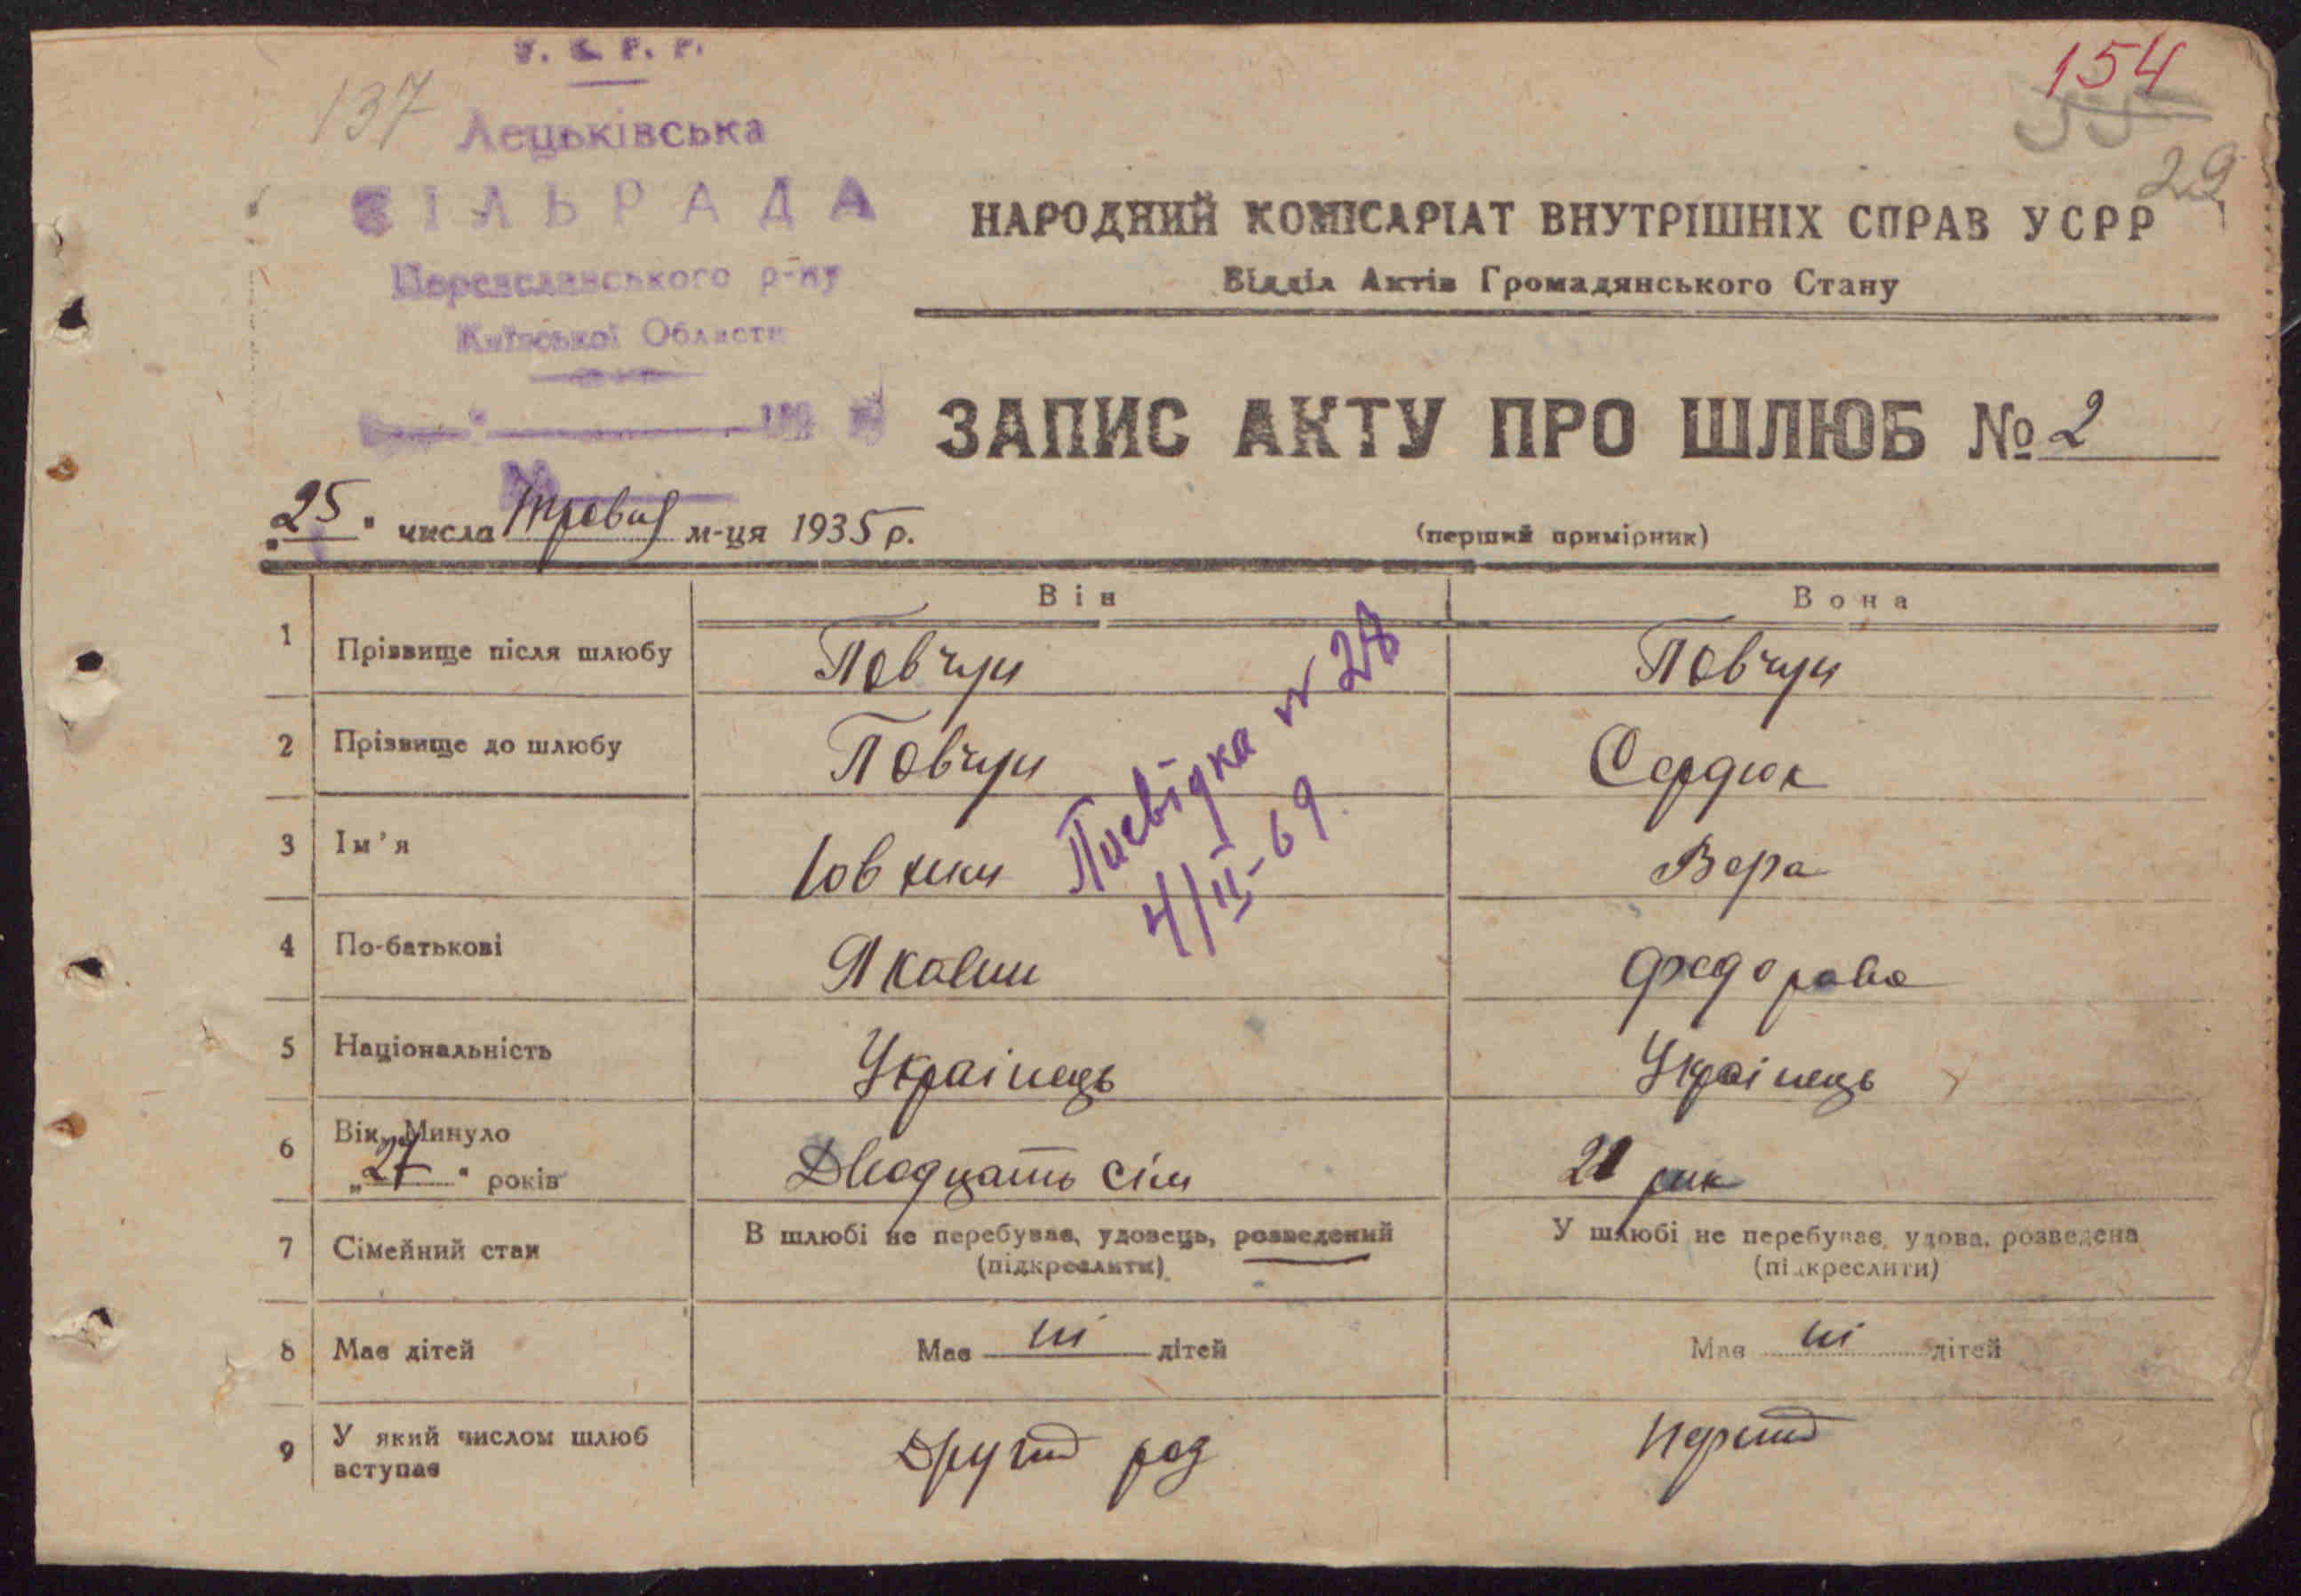 У. С. Р. Р.
137
154
29
Лецьківська
СІЛЬРАДА
Переяславського р-ну
Київської Области
НАРОДНИЙ КОМІСАРІАТ ВНУТРІШНІХ СПРАВ УСРР
Відділ Актів Громадянського Стану
ЗАПИС АКТУ ПРО ШЛЮБ № 2
„25" числа Травня м-ця 1935 р.
(перший примірник)
Він Вона
1 Прізвище після шлюбу Повчун Повчун
2 Прізвище до шлюбу Повчун Сердюк
3 Ім'я Вера
4 По-батькові Якович Федоровна
5 Національність Українець Українець
6 Вік. Минуло „27" років Двадцать сім 21 рик
7 Сімейний стан В шлюбі не перебував, удовець, розведений (підкреслити) У шлюбі не перебуває, удова, розведена (підкреслити)
8 Має дітей Має ні дітей Має ні дітей
9 У який числом шлюб вступає Другий раз Перший
№ 28
4/II-69